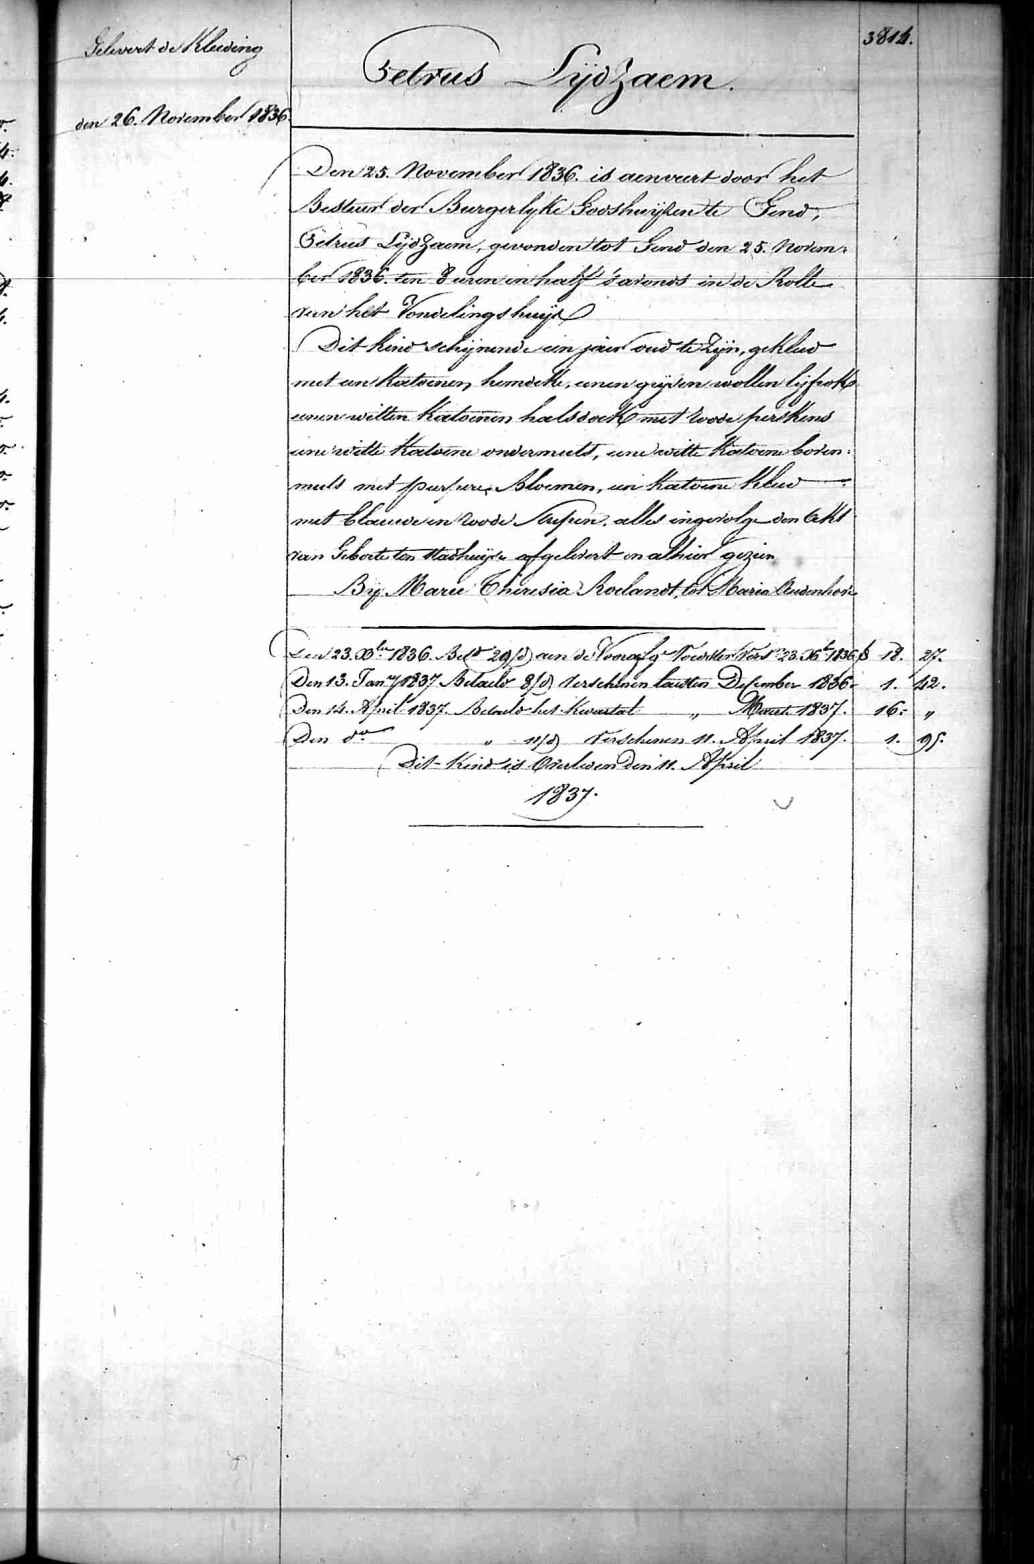 3814.
Gelevert de Kleeding
den 26. November 1836.
Petrus Lydzaem.
Den 25. November 1836. is aenveert door het
Bestuer der Burgerlyke Godshuijsen te Gend,
Petrus Lydzaem, gevonden tot Gend den 25. Novem-
ber 1836. ten 8 uren en half 's avonds in de Rolle
van het Vondelingshuijs
Dit kind schijnende een jaer oud te zyn, gekleed
met een katoenen hemdeke, eenen grijsen wollen lyfrok,
eenen witten katoenen halsdoek met roode perskens
eene witte katoene ondermuts, eene witte katoene boven-
muts met purpere Bloemen, een katoene kleed
met blauwe en roode streepen, alles ingevolge den Akt
van Geboorte ten stadhuijse afgelevert en alhier gezien
By Marie Theresia Roelandt, tot Maria Audenhove
Den 23. Xber 1836. Bet.d 29/d aen de Voorafg.e Voedster Vers.n 23. Xb.r 1836 f 18. 27.
Den 13. Jan.y 1837 Betaeld 8/d Verschenen lasten December 1836 - 1. 42.
Den 14. April 1837. Betaeld het Kwartal „ Meert 1837. 16. „
Den d.o „ 11/d Verschenen 11. April 1837. 1. 95.
Dit Kind is Overleden Den 11. April
1837.